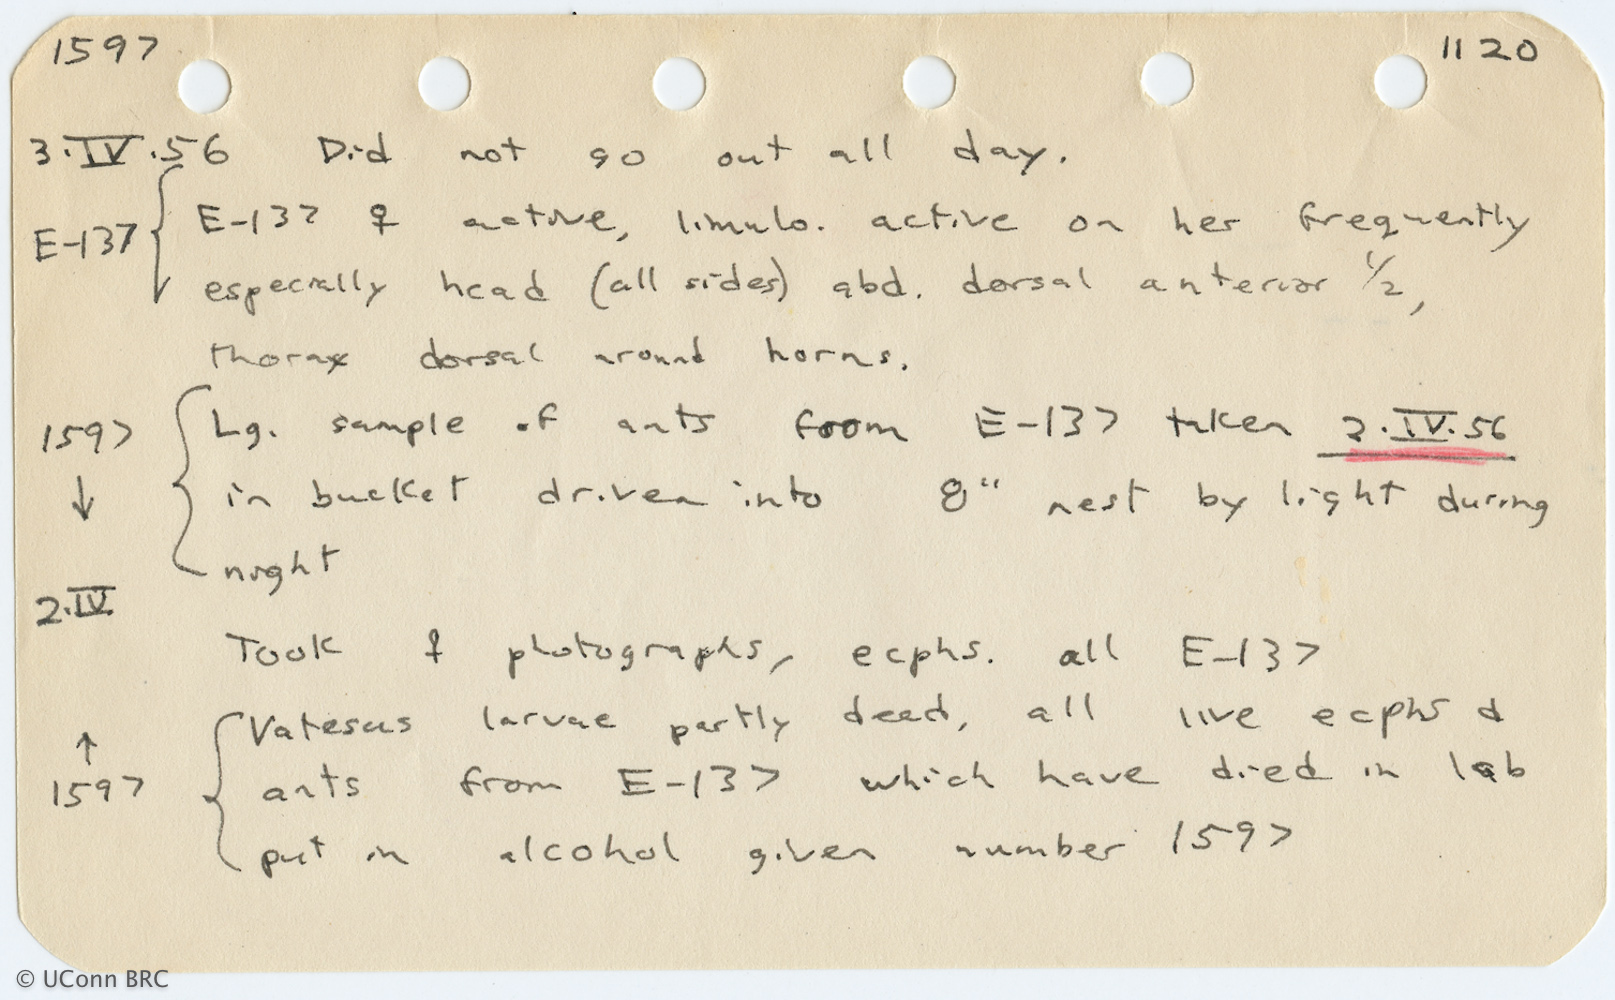 1597 1120
3·IV·56 Did not go out all day.
E-137 { E-137 ♀ active, limulo. active on her frequently
especially head (all sides) abd. dorsal anterior 1/2,
thorax dorsal around horns.
1597 { Lg. sample of ants from E-137 taken 2·IV·56
↓ in bucket driven into 8" nest by light during
night
2·IV
Took ♀ photographs, ecphs. all E-137
{ Vatesus larvae partly dead, all live ecphs &
↑
1597 ants from E-137 which have died in lab
put in alcohol given number 1597
© UConn BRC